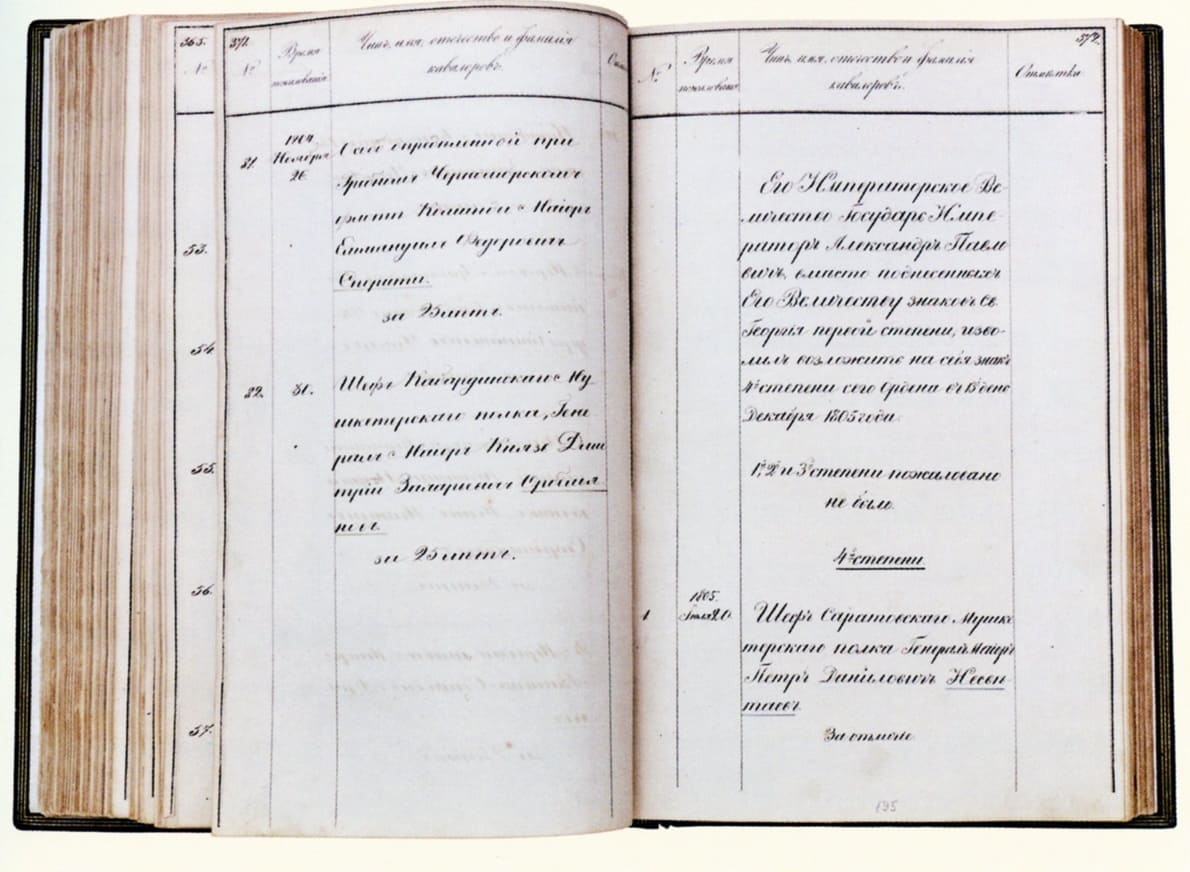 365.
№
53.
54.
55.
56.
57.
371.
№
Время
пожалованія
Чинъ, имя, отечество и фамилія
кавалеровъ.
1804
Ноября
26.
31.
Состоящій при
Гребномъ Черноморскомъ
флотѣ Маіоръ
Еммануилъ Федоровичъ
за 25 лѣтъ.
32.
30.
Шефъ Кабардинскаго Му-
шкетерскаго полка, Гене
ралъ Маіоръ Князь Дми
трій Захаровичъ Орбелья
новъ.
за 25 лѣтъ.
372.
№
Время
пожалованія
Чинъ, имя, отечество и фамилія
кавалеровъ.
Отмѣтка
Его Императорское Ве-
личество Государь Импе-
раторъ Александръ Павло
вичъ, вмѣсто поднесенныхъ
Его Величеству знаковъ Св.
Георгія первой степени, изво-
лилъ возложить на себя знакъ
4й степени сего Ордена въ 13 день
Декабря 1805 года.
1й, 2й и 3й степени пожаловано
не было.
4й степени
1
1805.
20.
Шефъ Саратовскаго Мушке
терскаго полка Генералъ Маіоръ
Петръ Даниловичъ Несвѣ-
таевъ.
За отличіе
195